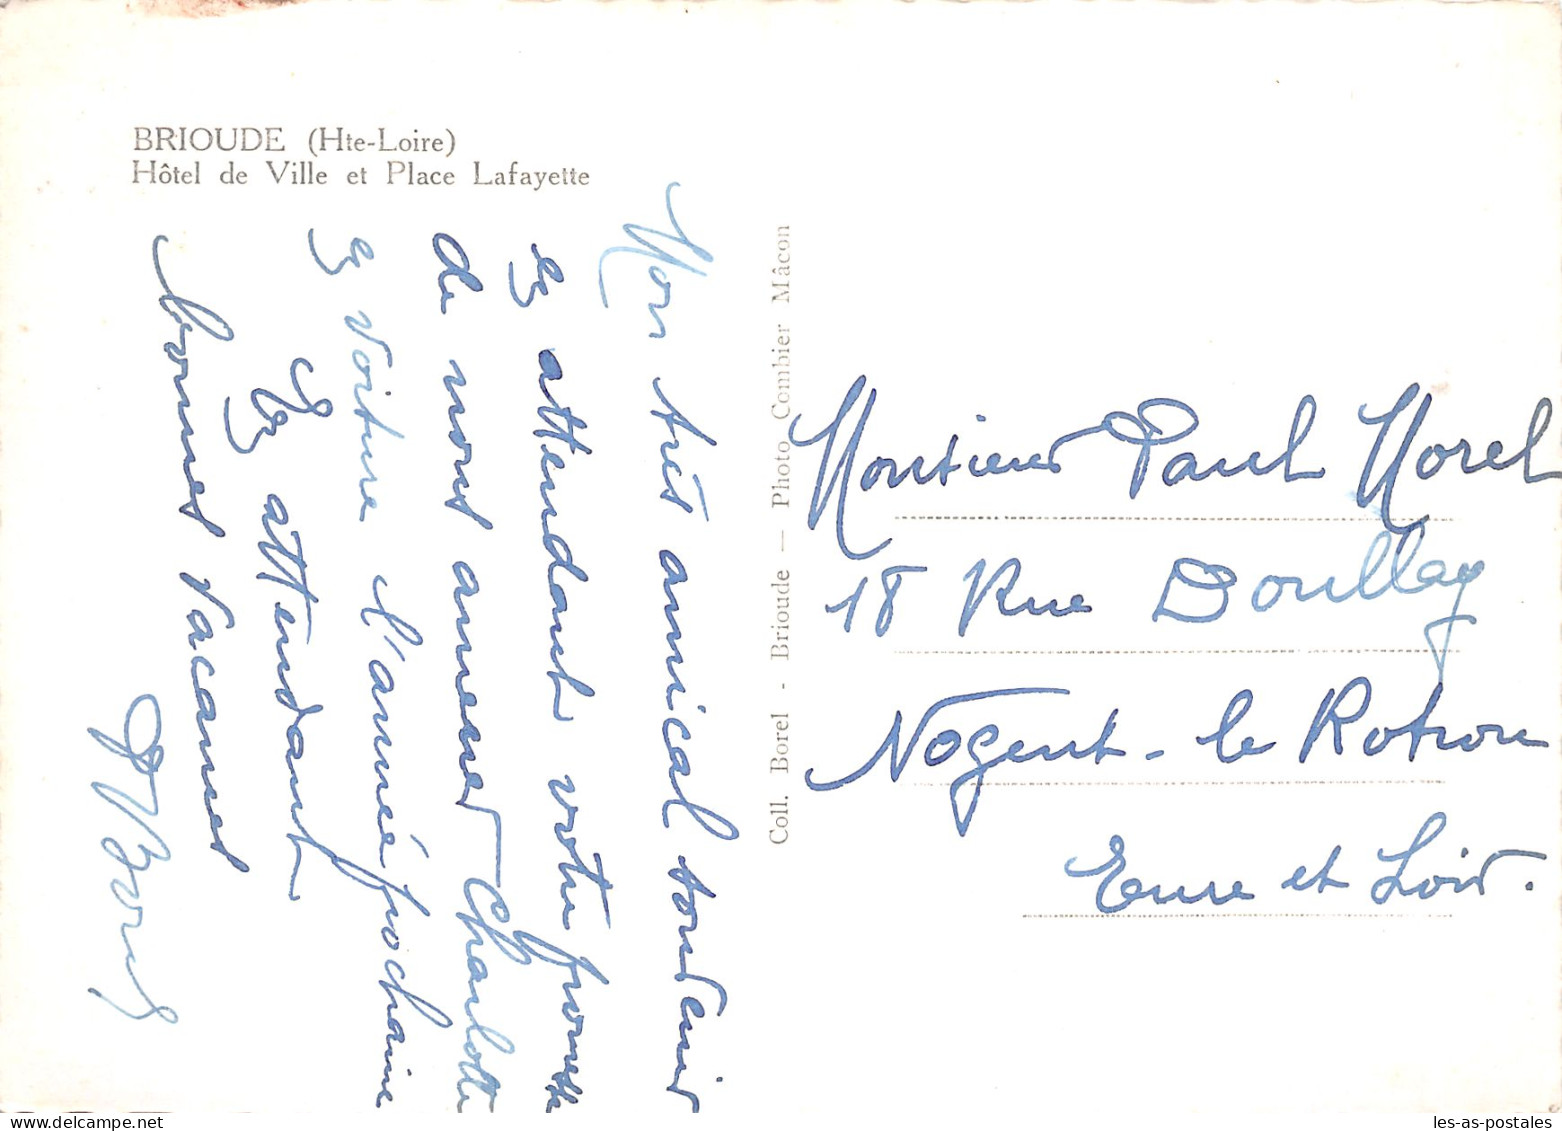 BRIOUDE (Hte-Loire)
Hôtel de Ville et Place Lafayette
Mon très amical souvenir
En attendant votre promesse
de nous amener Charlotte
En voiture l'année prochaine
En attendant
bonnes vacances
Coll. Borel - Brioude — Photo Combier Mâcon
Monsieur Paul Morel
18 Rue Doullay
Nogent-le Rotrou
Eure et Loir.
les-as-postales